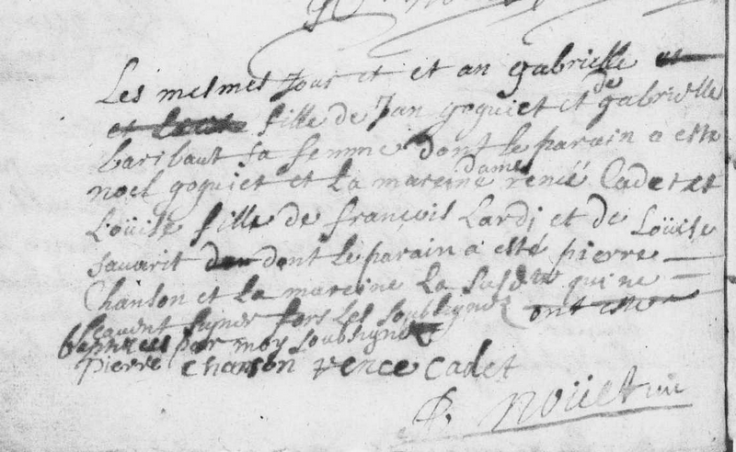 Les mesmes Jour et et an gabrielle
fille de Jan goguiet et de gabrielle
baribaut sa femme dont le parain a este
noel goguiet et la mareine dame renée Cadet et
Loüise fille de françois Lardj et de Loüise
savarit dont le parain a esté pierre
Chanson et la mareine la susdtte qui ne
scavent signer fors les soubsignez ont este
baptisees par moy soubsigne
pierre chanson rence cadet
P. Noüet